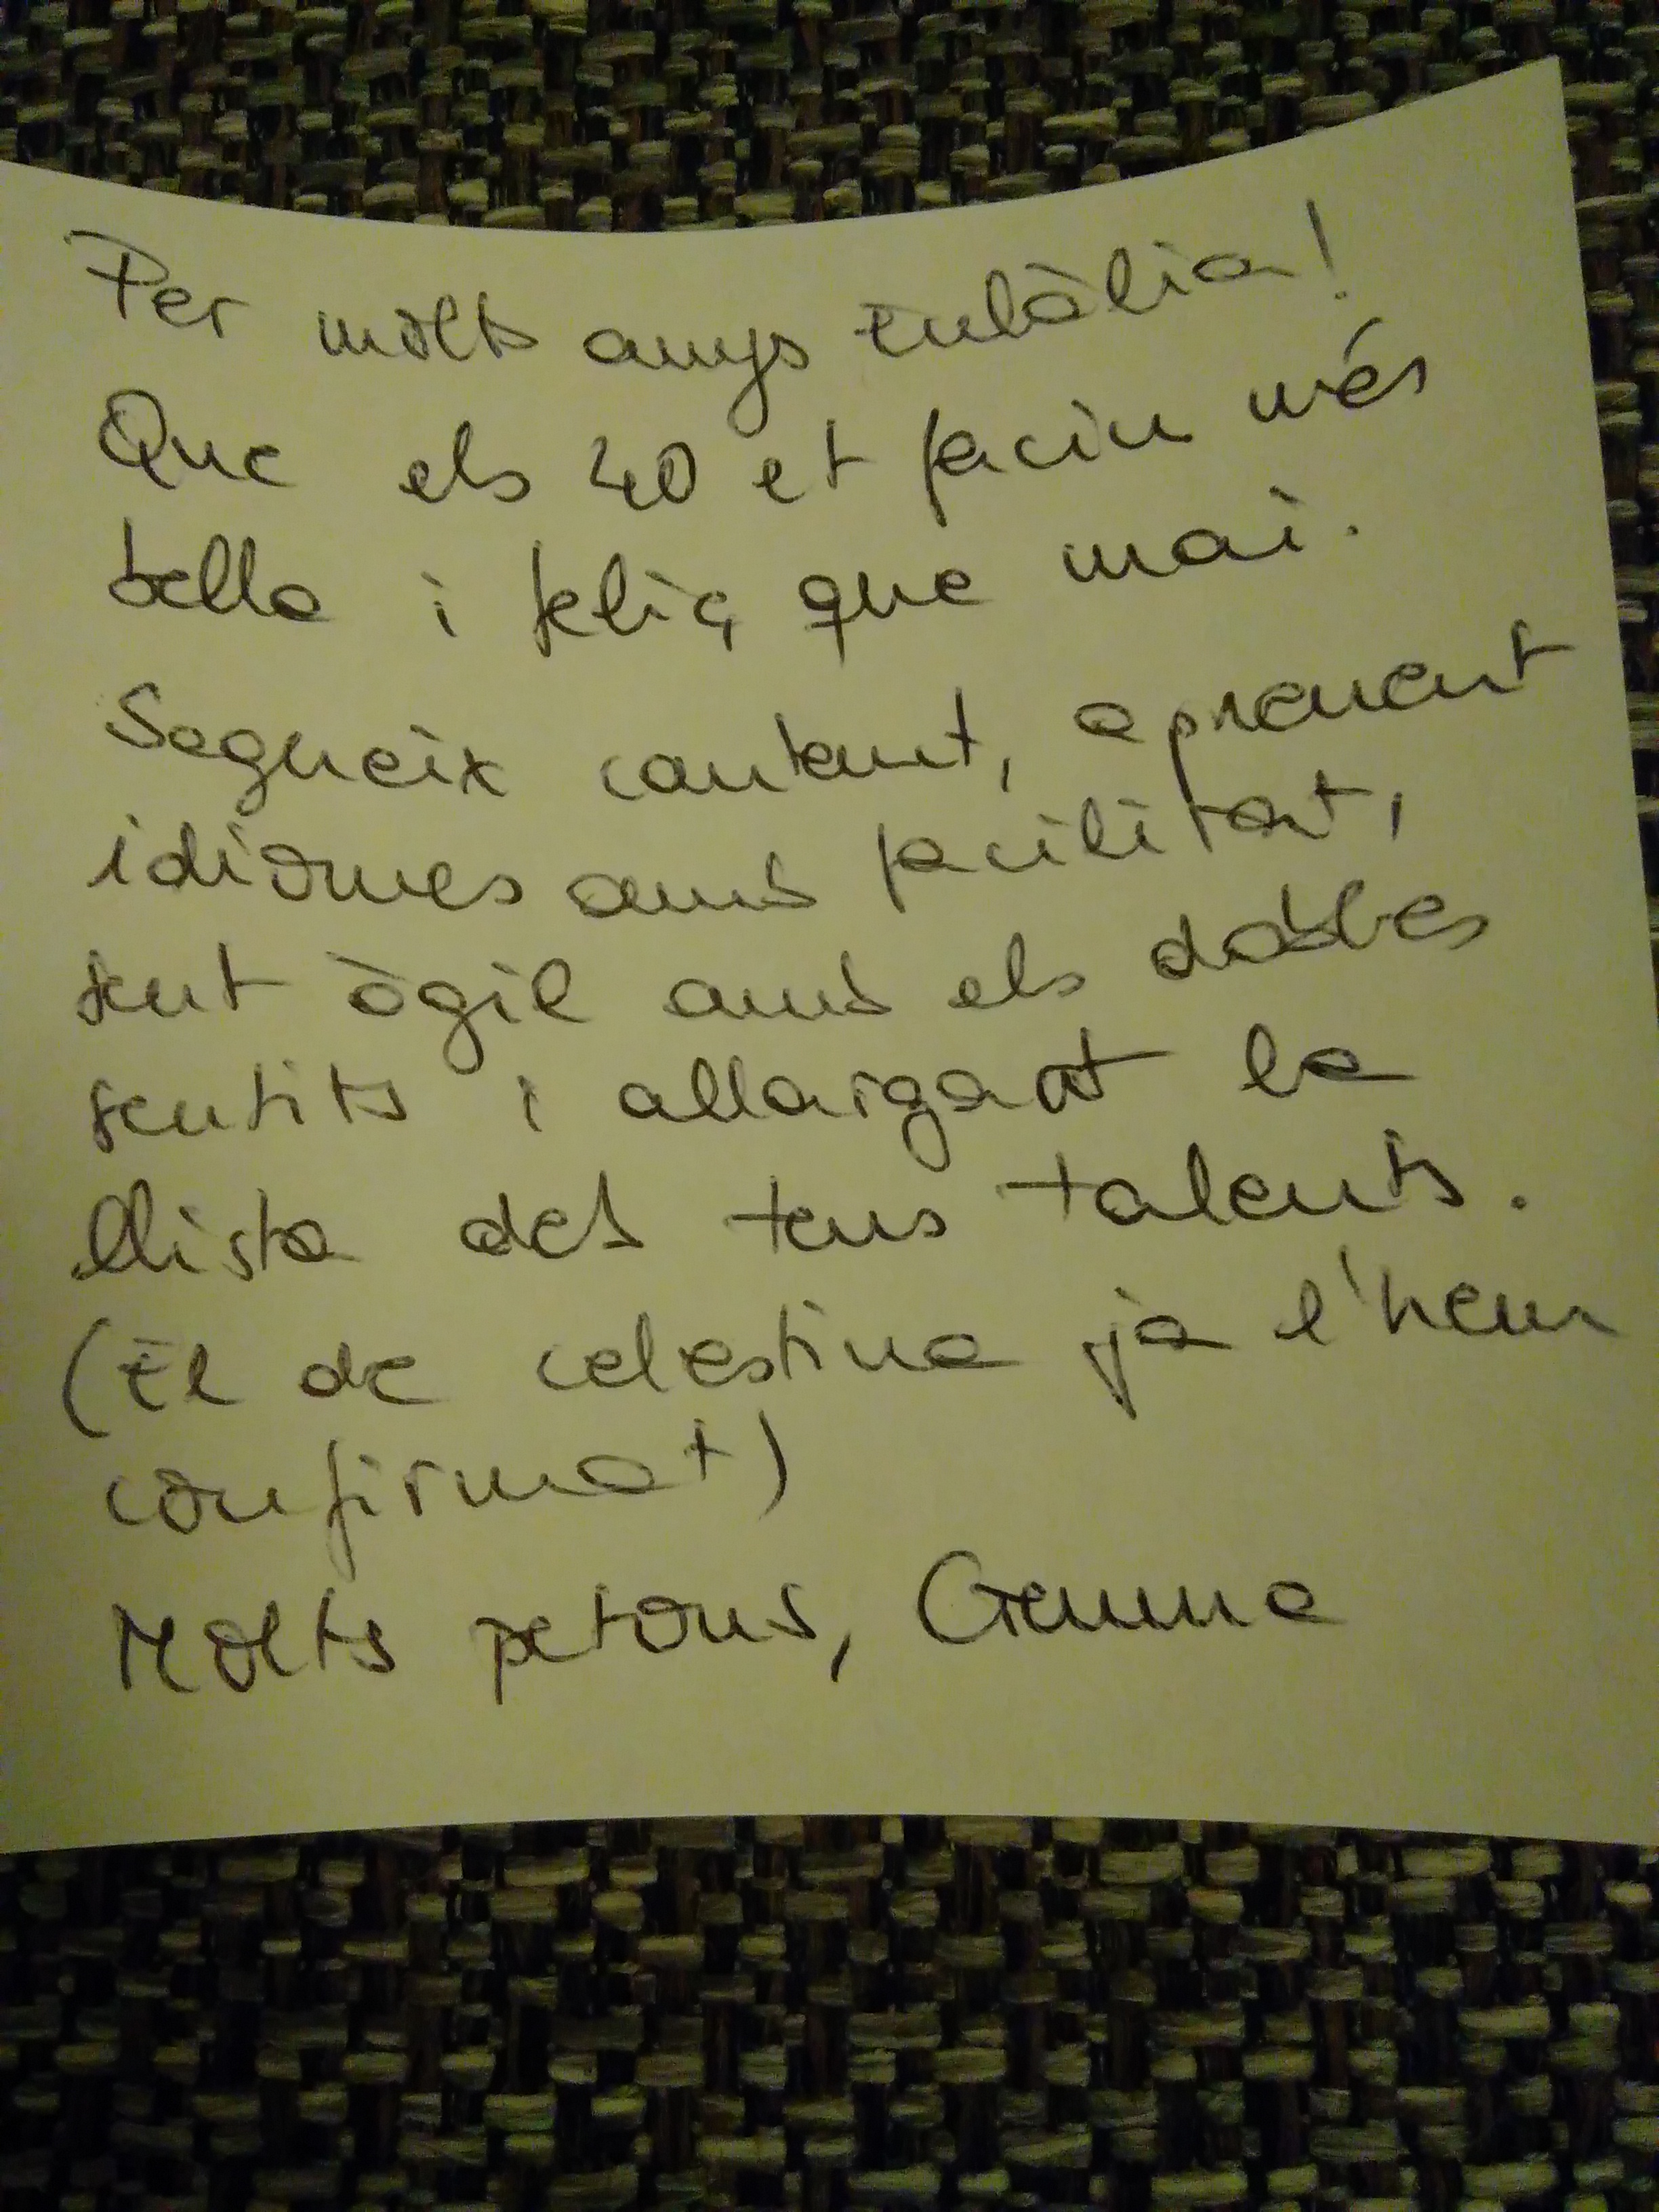 Per molts anys Eulàlia!
Que els 40 et facin més
bella i feliç que mai.
Segueix cantant, aprenent
idiomes amb facilitat,
sent àgil amb els dobles
sentits i allargant la
llista dels teus talents.
(El de celestina ja l'hem
confirmat)
Molts petons, Gemma